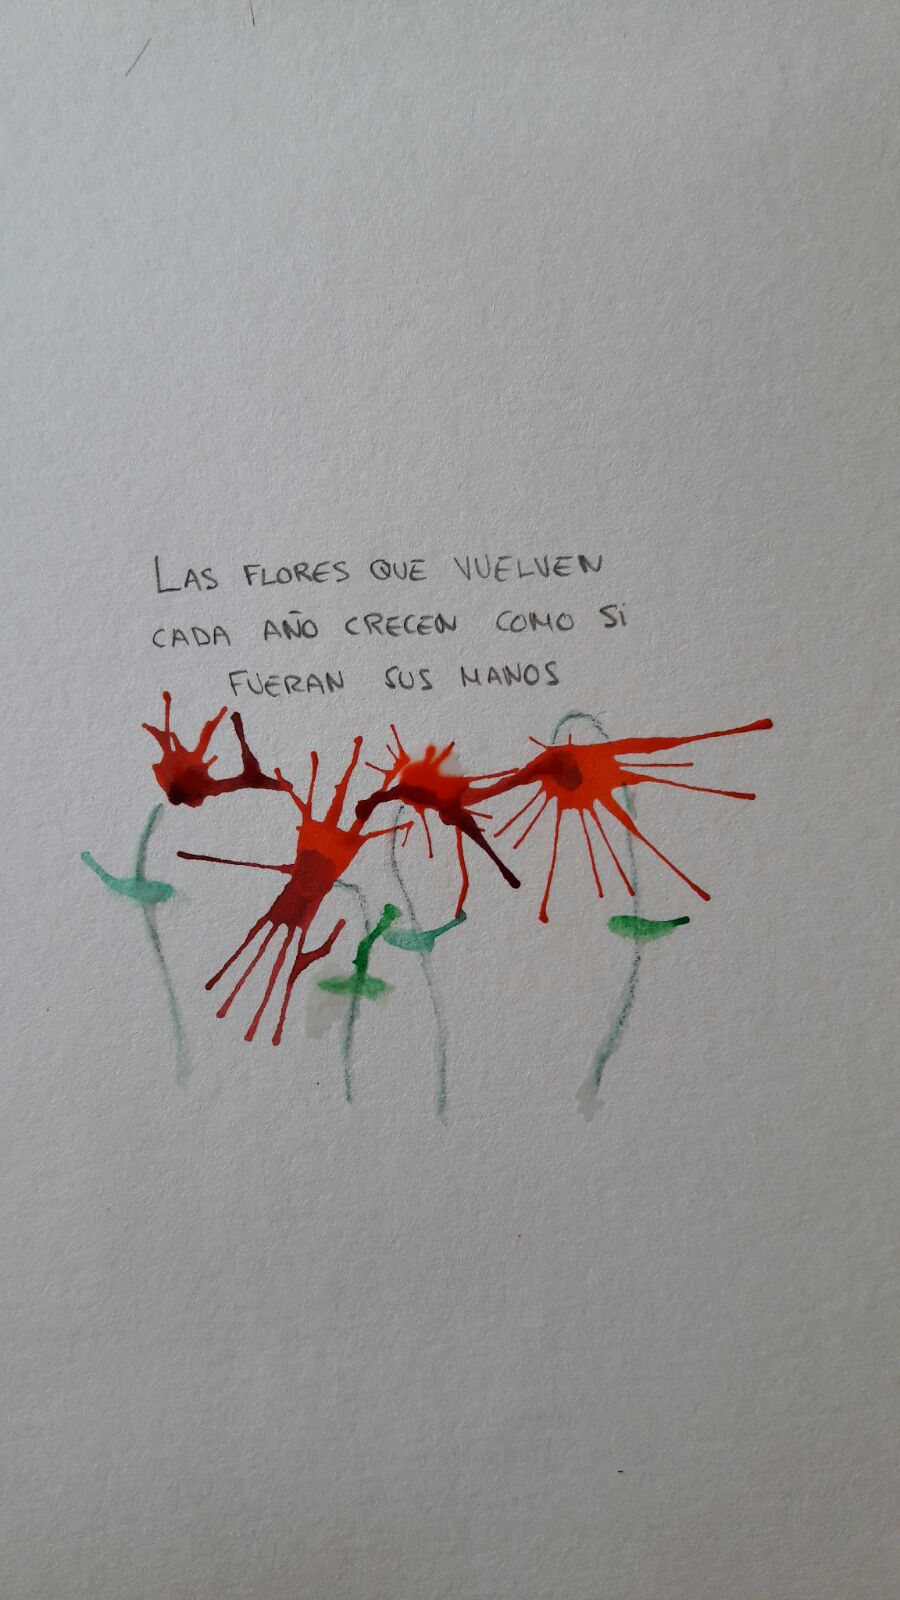 LAS FLORES QUE VUELVEN
CADA AÑO CRECEN COMO Si
FUERAN SUS MANOS